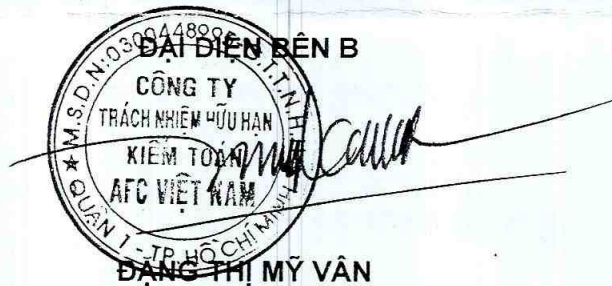 ĐẠI DIỆN BÊN B
M.S.D.N:0300448995-C.T.T.N.H.H
CÔNG TY
TRÁCH NHIỆM HỮU HẠN
KIỂM TOÁN
AFC VIỆT NAM
QUẬN 1 - TP. HỒ CHÍ MINH
ĐẶNG THỊ MỸ VÂN